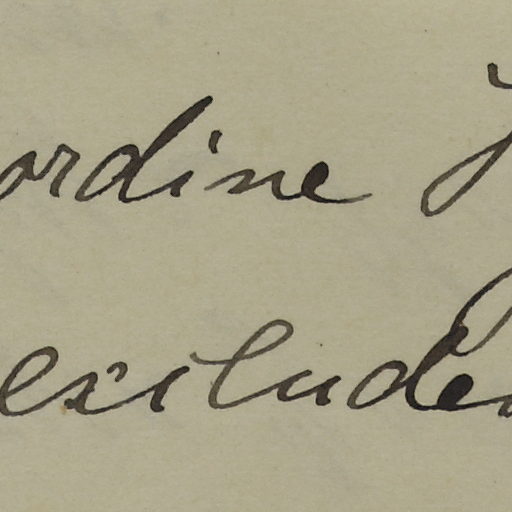 ordine
excluden